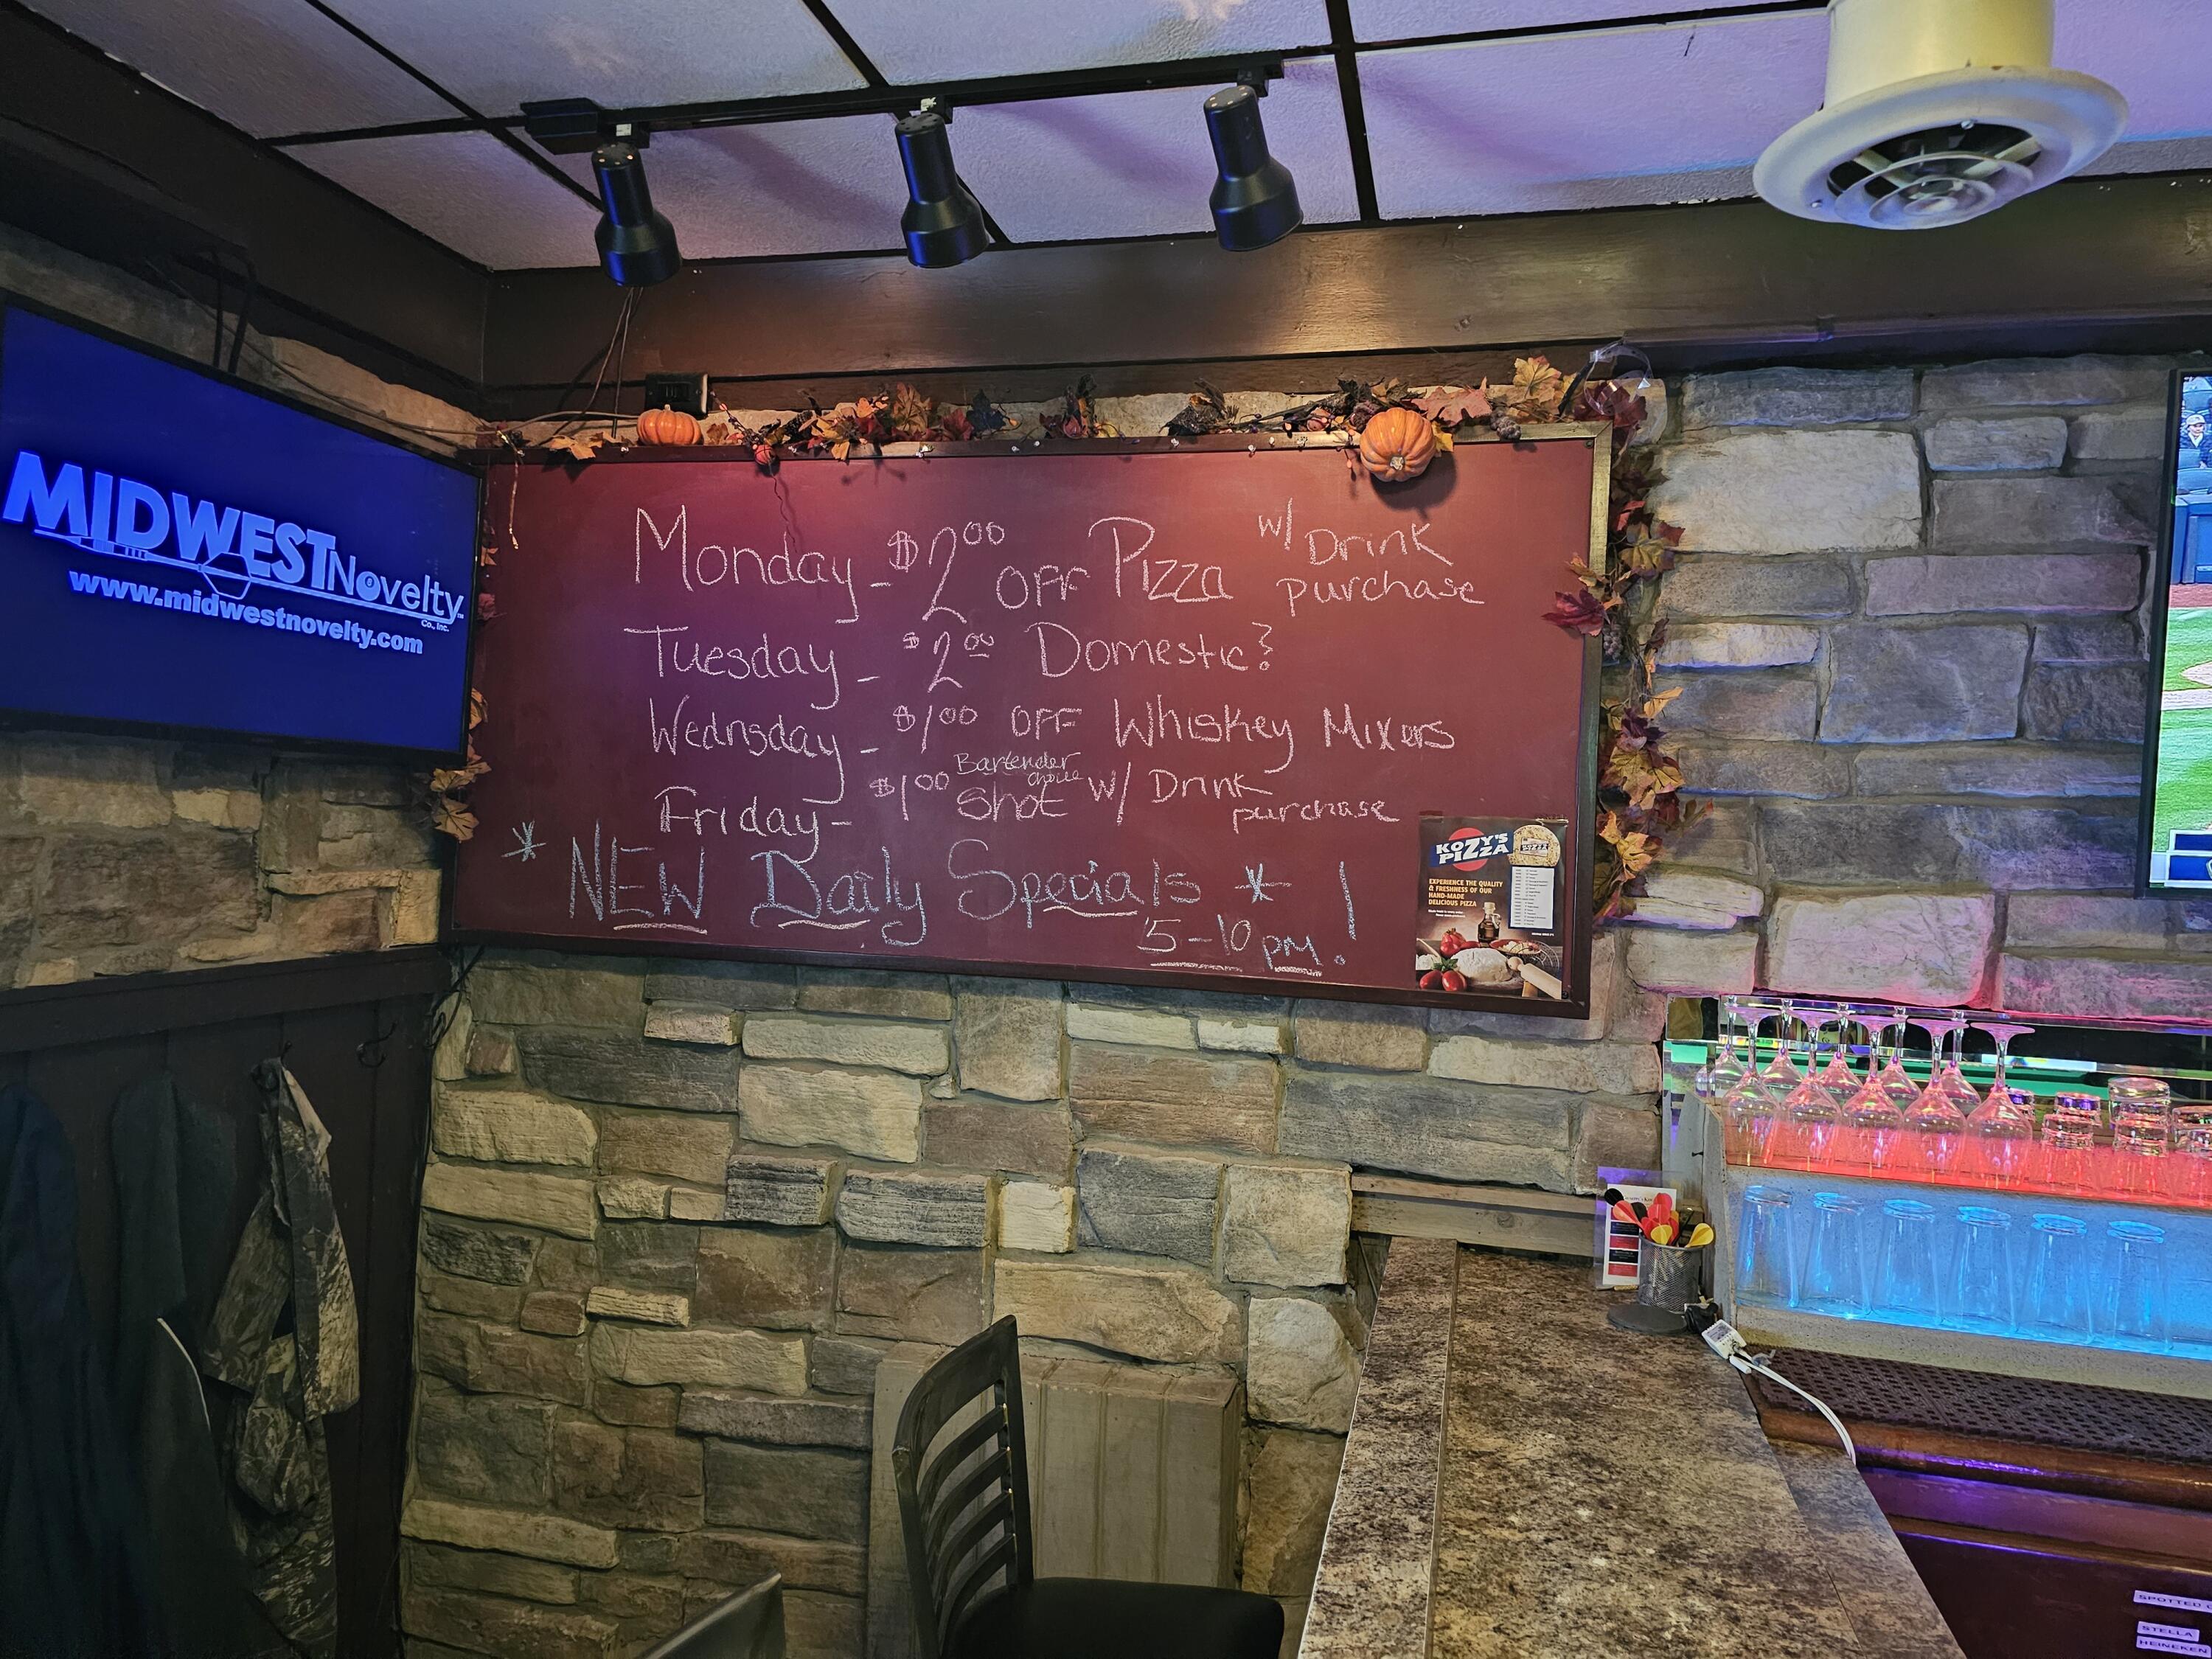 MIDWEST Novelty
Co., Inc.
www.midwestnovelty.com
Monday - $2.00 OFF Pizza w/ Drink purchase
Tuesday - $2.00 Domestic?
Wednsday - $1.00 OFF Whiskey Mixers
Friday - $1.00 Bartender choice Shot w/ Drink purchase
* NEW Daily Specials * !
5-10 pm
KOZY'S
PIZZA
EXPERIENCE THE QUALITY
& FRESHNESS OF OUR
HAND-MADE
DELICIOUS PIZZA
SPOTTED
STELLA
HEINEKEN